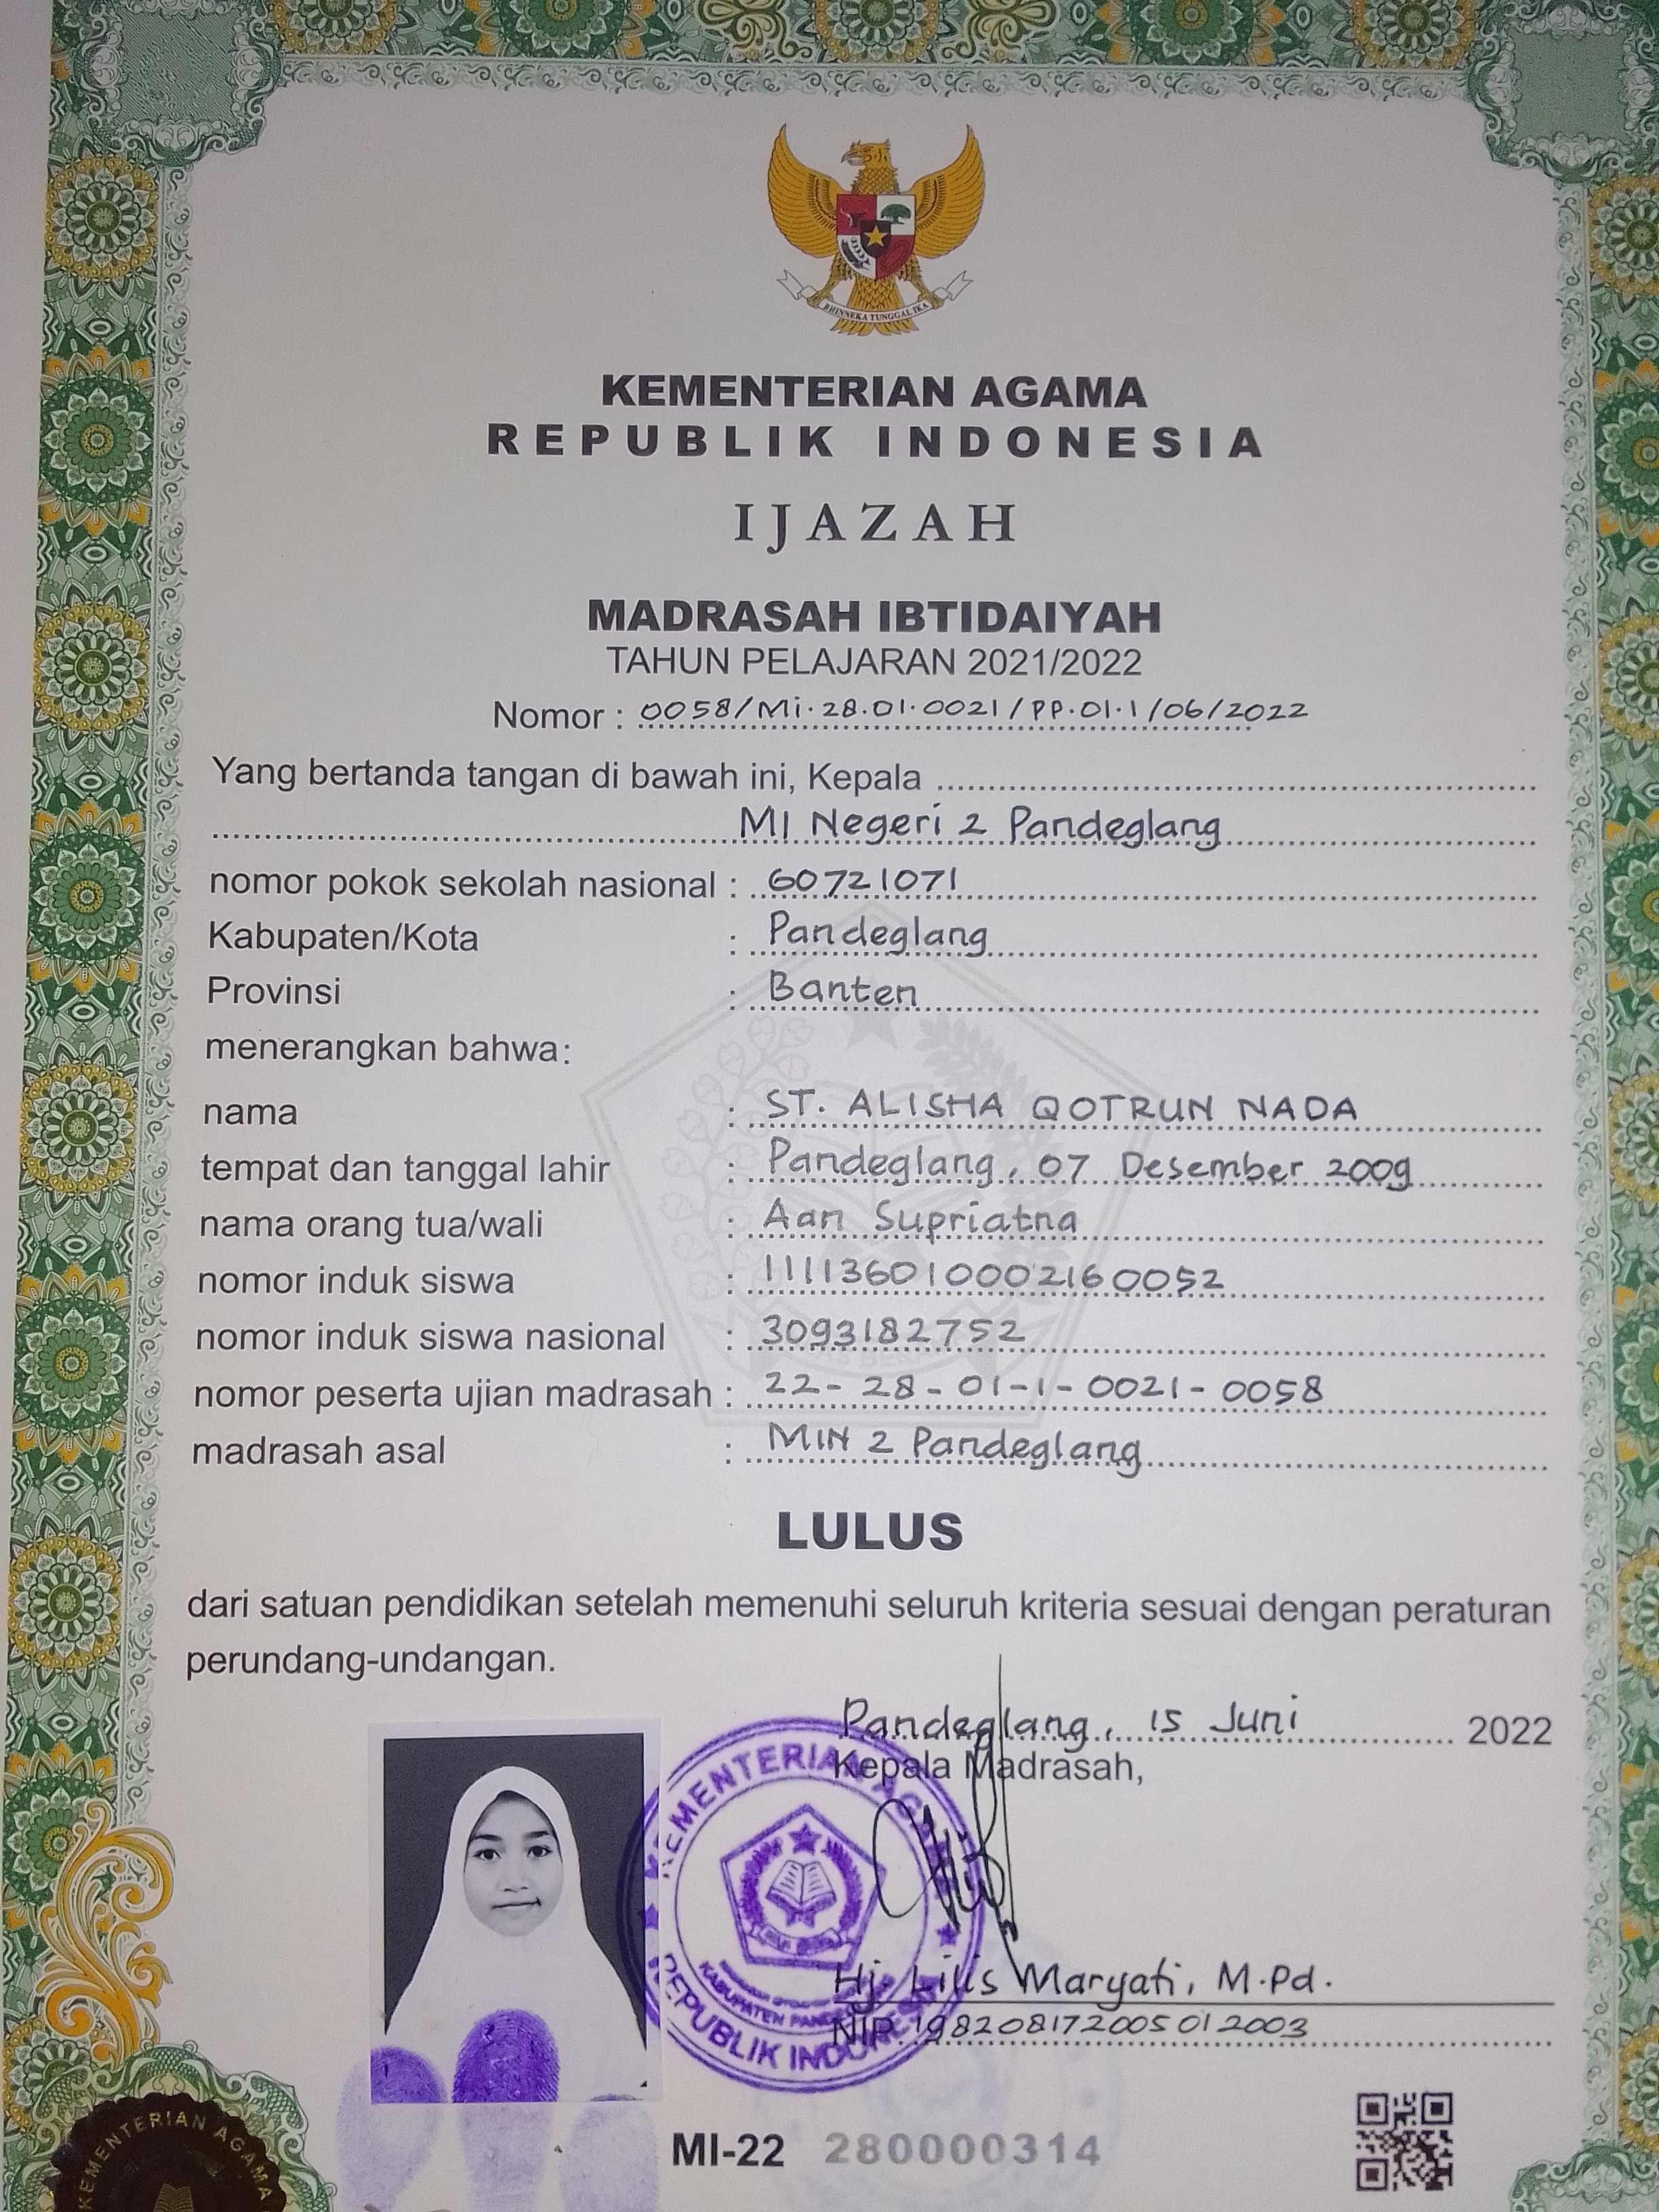 BHINNEKA TUNGGAL IKA
KEMENTERIAN AGAMA
REPUBLIK INDONESIA
IJAZAH
MADRASAH IBTIDAIYAH
TAHUN PELAJARAN 2021/2022
Nomor : 0058/Mi.28.01.0021/PP.01.1/06/2022
Yang bertanda tangan di bawah ini, Kepala
MI Negeri 2 Pandeglang
nomor pokok sekolah nasional : 60721071
Kabupaten/Kota : Pandeglang
Provinsi : Banten
menerangkan bahwa:
nama : ST. ALISHA QOTRUN NADA
tempat dan tanggal lahir : Pandeglang, 07 Desember 2009
nama orang tua/wali : Aan Supriatna
nomor induk siswa : 111136010002160052
nomor induk siswa nasional : 3093182752
nomor peserta ujian madrasah : 22-28-01-1-0021-0058
madrasah asal : MIN 2 Pandeglang
LULUS
dari satuan pendidikan setelah memenuhi seluruh kriteria sesuai dengan peraturan
perundang-undangan.
Pandeglang, 15 Juni 2022
Kepala Madrasah,
KEMENTERIAN AGAMA
KABUPATEN PANDEGLANG
REPUBLIK INDONESIA
Hj. Lilis Maryati, M.Pd.
NIP. 198208172005012003
KEMENTERIAN AGAMA
MI-22 280000314